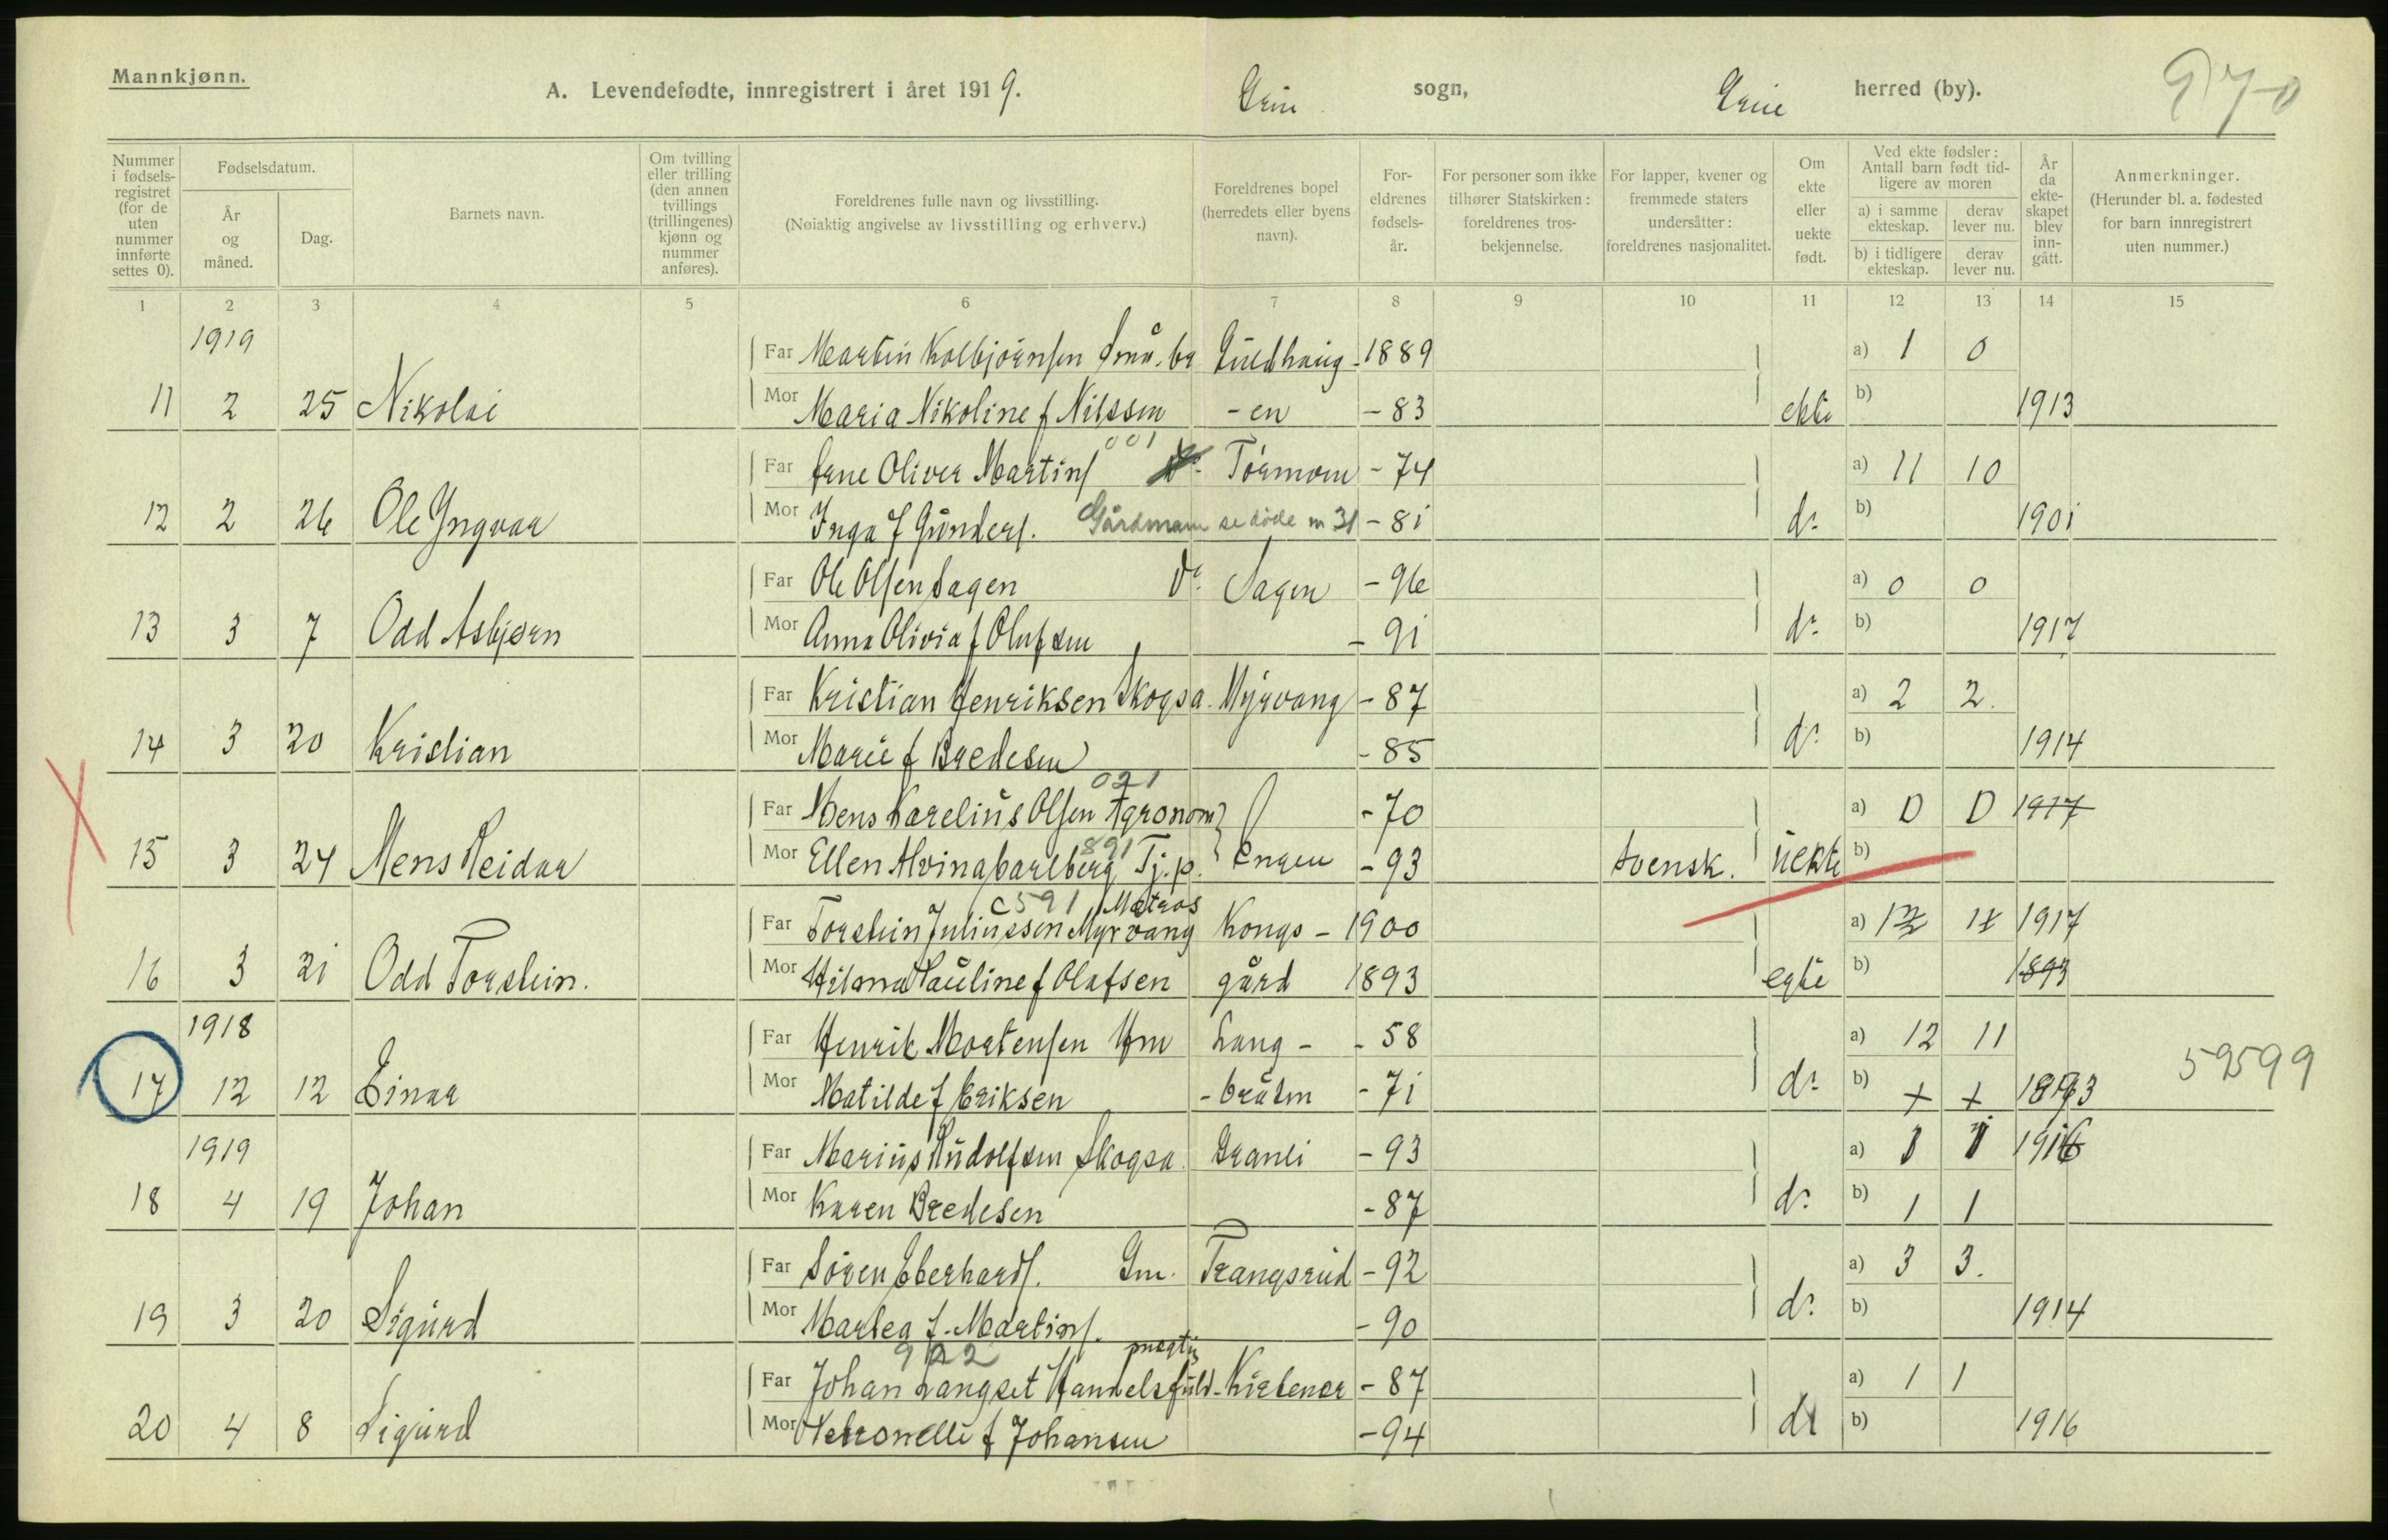 Mannkjønn.
A. Levendefødte, innregistrert i året 1919.
sogn,
herred (by).
970
Nummer i fødselsregistret (for de uten nummer innførte settes 0).
Fødselsdatum.
År og måned.
Dag.
Barnets navn.
Om tvilling eller trilling (den annen tvillings (trillingenes) kjønn og nummer anføres).
Foreldrenes fulle navn og livsstilling.
(Nøiaktig angivelse av livsstilling og erhverv.)
Foreldrenes bopel (herredets eller byens navn).
Foreldrenes fødselsår.
For personer som ikke tilhører Statskirken: foreldrenes trosbekjennelse.
For lapper, kvener og fremmede staters undersåtter: foreldrenes nasjonalitet.
Om ekte eller uekte født.
Ved ekte fødsler: Antall barn født tidligere av moren
a) i samme ekteskap. derav lever nu.
b) i tidligere ekteskap. derav lever nu.
År da ekteskapet blev inngått.
Anmerkninger.
(Herunder bl. a. fødested for barn innregistrert uten nummer.)
1 2 3 4 5 6 7 8 9 10 11 12 13 14 15
1919
Far Martin Kolbjørnsen Små.br Guldhaug - 1889 a) 1 0
11 2 25 Nikolai Mor Maria Nikoline f Nilssen - en - 83 ekte b) 1913
001
Far Arne Oliver Martins Tørmoen - 74 a) 11 10
12 2 26 Ole Yngvar Mor Inga f Gunders. Gårdmann se døde nr 31 - 81 do b) 1901
Far Ole Olsen Sagen do Sagen - 96 a) 0 0
13 3 7 Odd Asbjørn Mor Anna Olivia f Olufsen - 91 do b) 1917
Far Kristian Henriksen Skogsa. Myrvang - 87 a) 2 2.
14 3 20 Kristian Mor Marie f Bredesen - 85 do b) 1914
021
Far Mens Karelius Olsen Agronom - 70 a) 0 0 1917
891
15 3 24 Mens Reidar Mor Ellen Alvina Carlberg Tj.p. Engen - 93 svensk. uekte b)
C591 Matros
Far Torstein Juliussen Myrvang Kongs - 1900 a) 1917
16 3 21 Odd Torstein. Mor Hilma Pauline f Olafsen gård 1893 egte b) 1893
1918
Far Henrik Mortensen Hm Lang - - 58 a) 12 11
17 12 12 Einar Mor Matilde f Eriksen - bråtm - 71 do b) + + 1893 59599
1919
Far Marius Rudolfsen Skogsa. Granli - 93 a) 1 1 1916
18 4 19 Johan Mor Karen Bredesen - 87 do b) 1 1
Far Søren Eberhards. Gm. Trangsrud - 92 a) 3 3.
19 3 20 Sigurd Mor Martea f. Martins. - 90 do b) 1914
922
Far Johan Langset Handelsfuld - Kirkener - 87 a) 1 1
20 4 8 Sigurd Mor Petronelle f Johansen - 94 do b) 1916